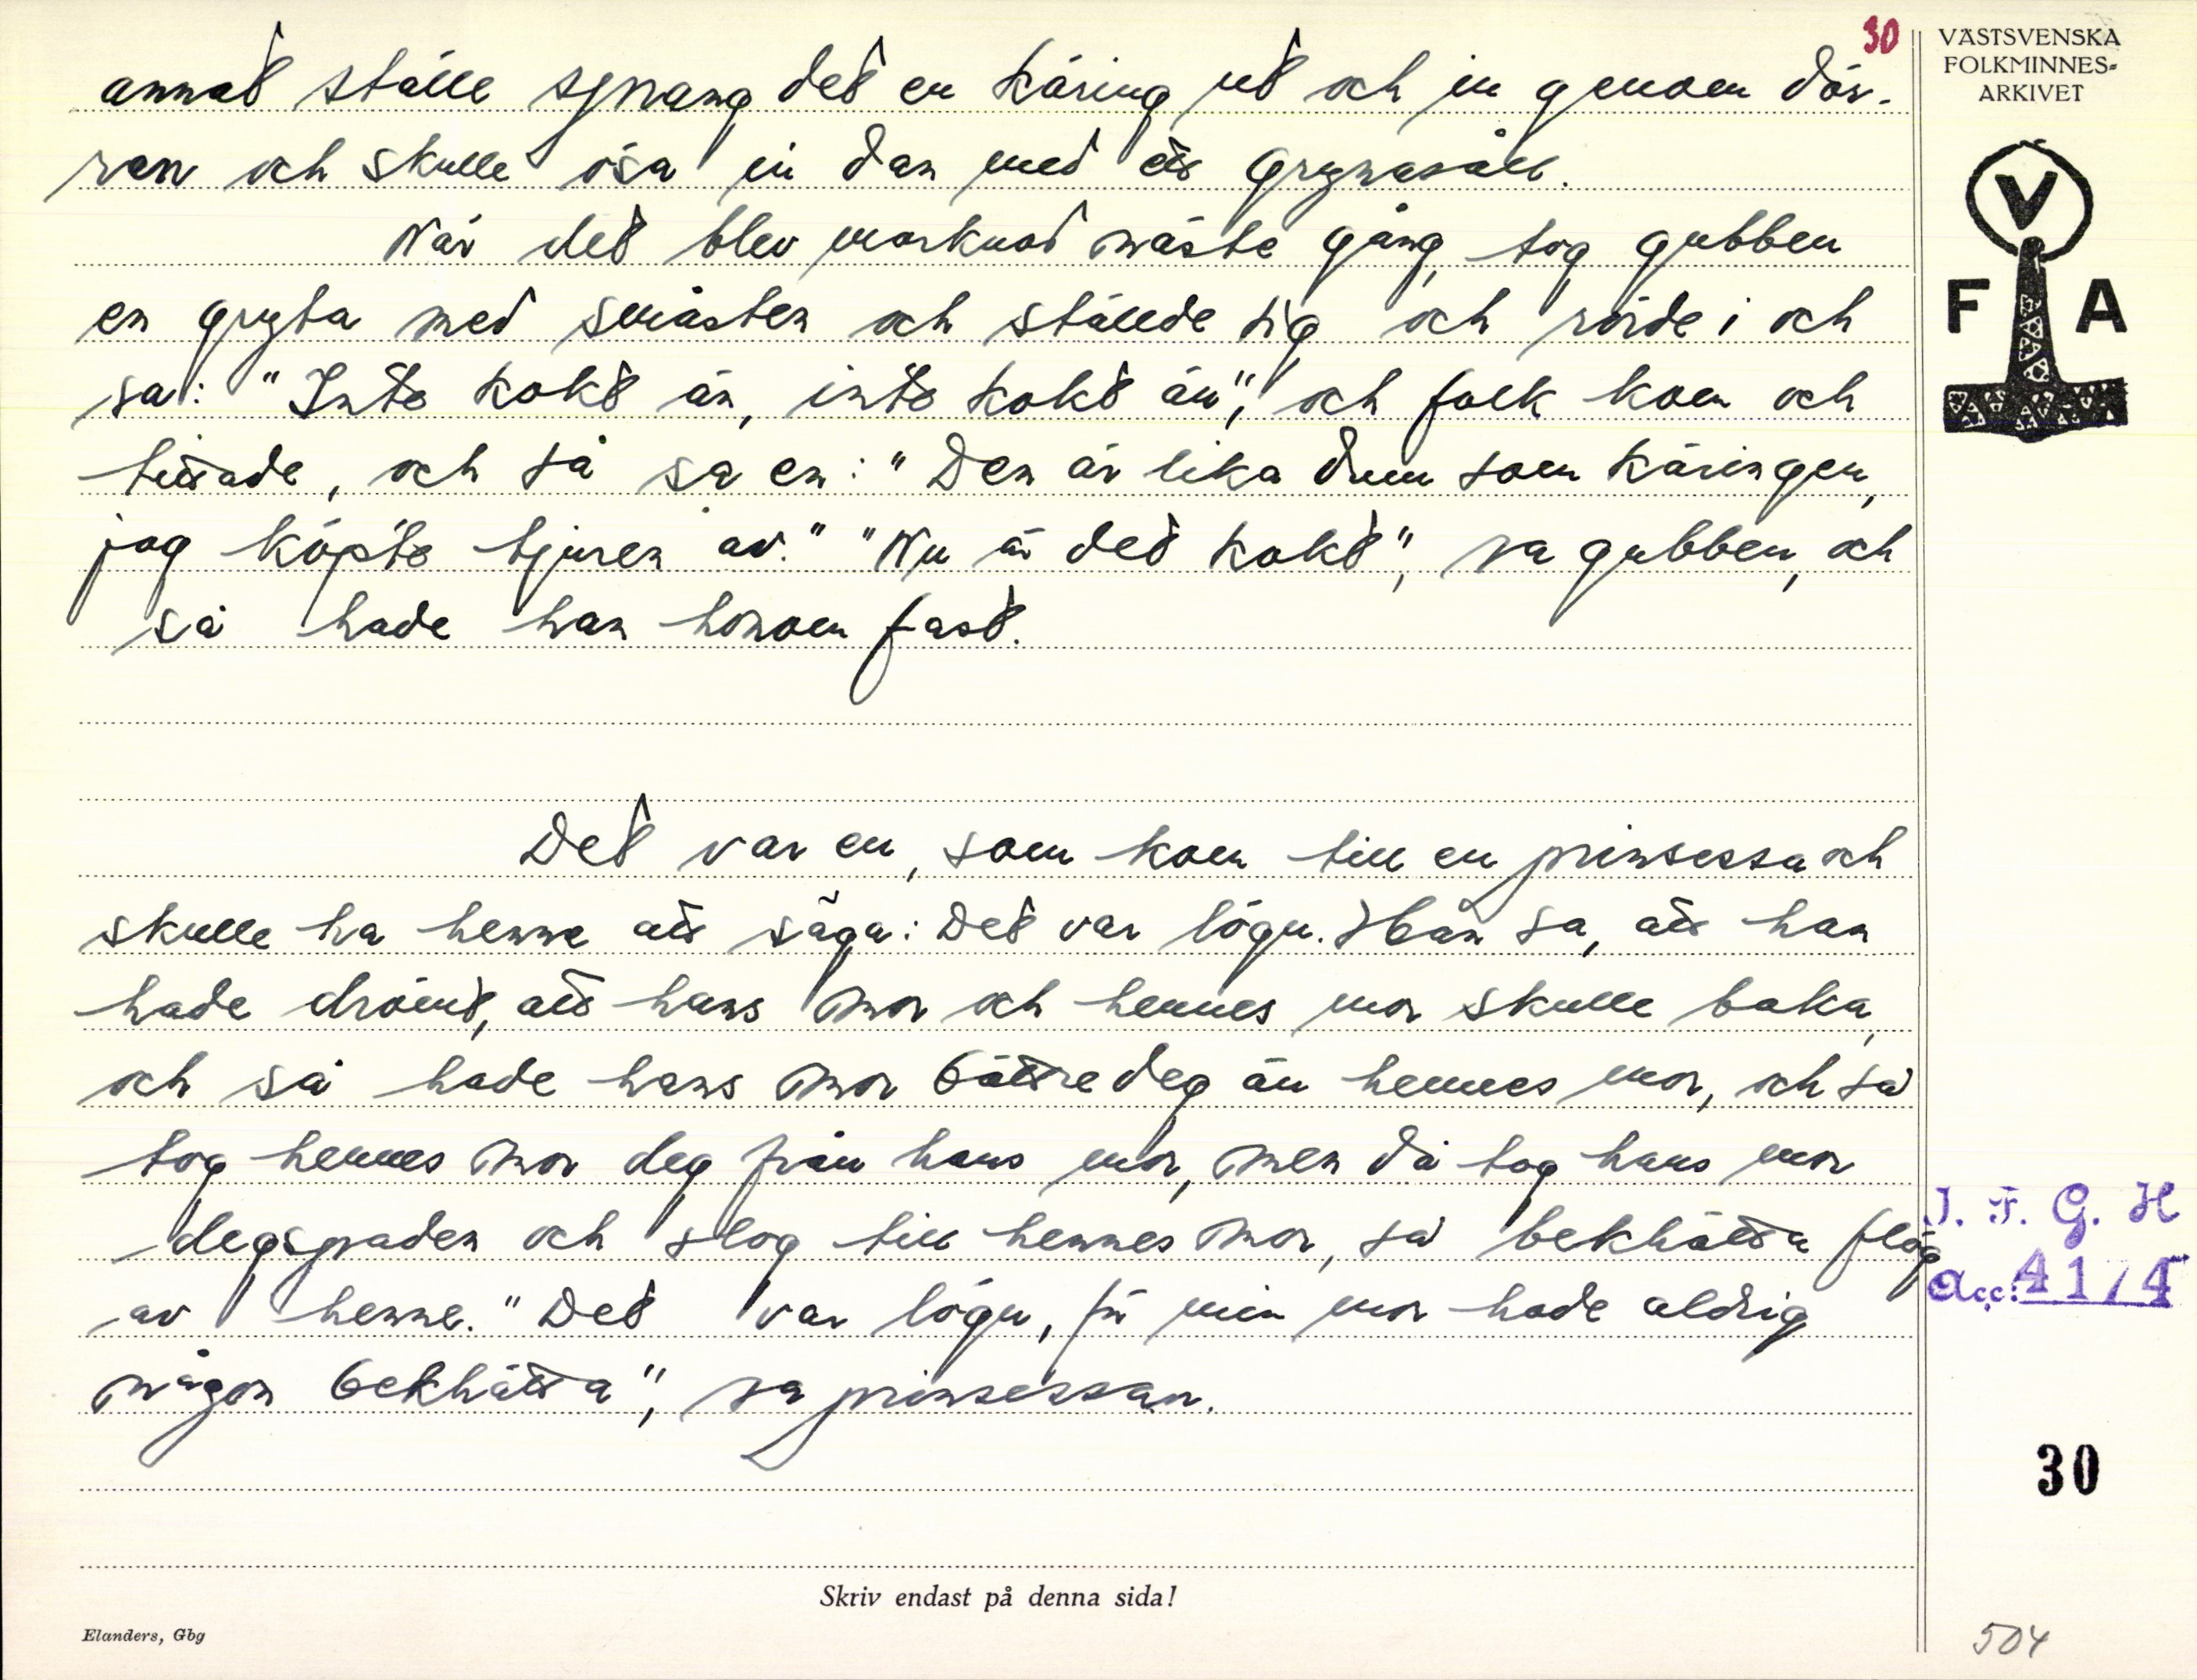 30
VÄSTSVENSKA
FOLKMINNES-
ARKIVET
V
F A
annat ställe sprang det en käring ut och in genom dör-
ren och skulle ösa in dan med ett grynasåll.
När det blev marknad näste gång, tog gubben
en gryta med småsten och ställde sig och rörde i och
sa: "Inte kokt än, inte kokt än", och folk kom och
tittade, och så sa en: "Den är lika dum som käringen,
jag köpte tjuren av." "Nu är det kokt", sa gubben, och
så hade han honom fast.
Det var en, som kom till en prinsessa och
skulle ha henne att säga: Det var lögn. Han sa, att han
hade drömt, att hans mor och hennes mor skulle baka,
och så hade hans mor bättre deg än hennes mor, och så
tog hennes mor deg från hans mor, men då tog hans mor
degspaden och slog till hennes mor, så bekhätta flög
av henne. "Det var lögn, för min mor hade aldrig
någon bekhätta", sa prinsessan.
I. F. G. H
Acc: 4174
30
Skriv endast på denna sida!
Elanders, Gbg
504